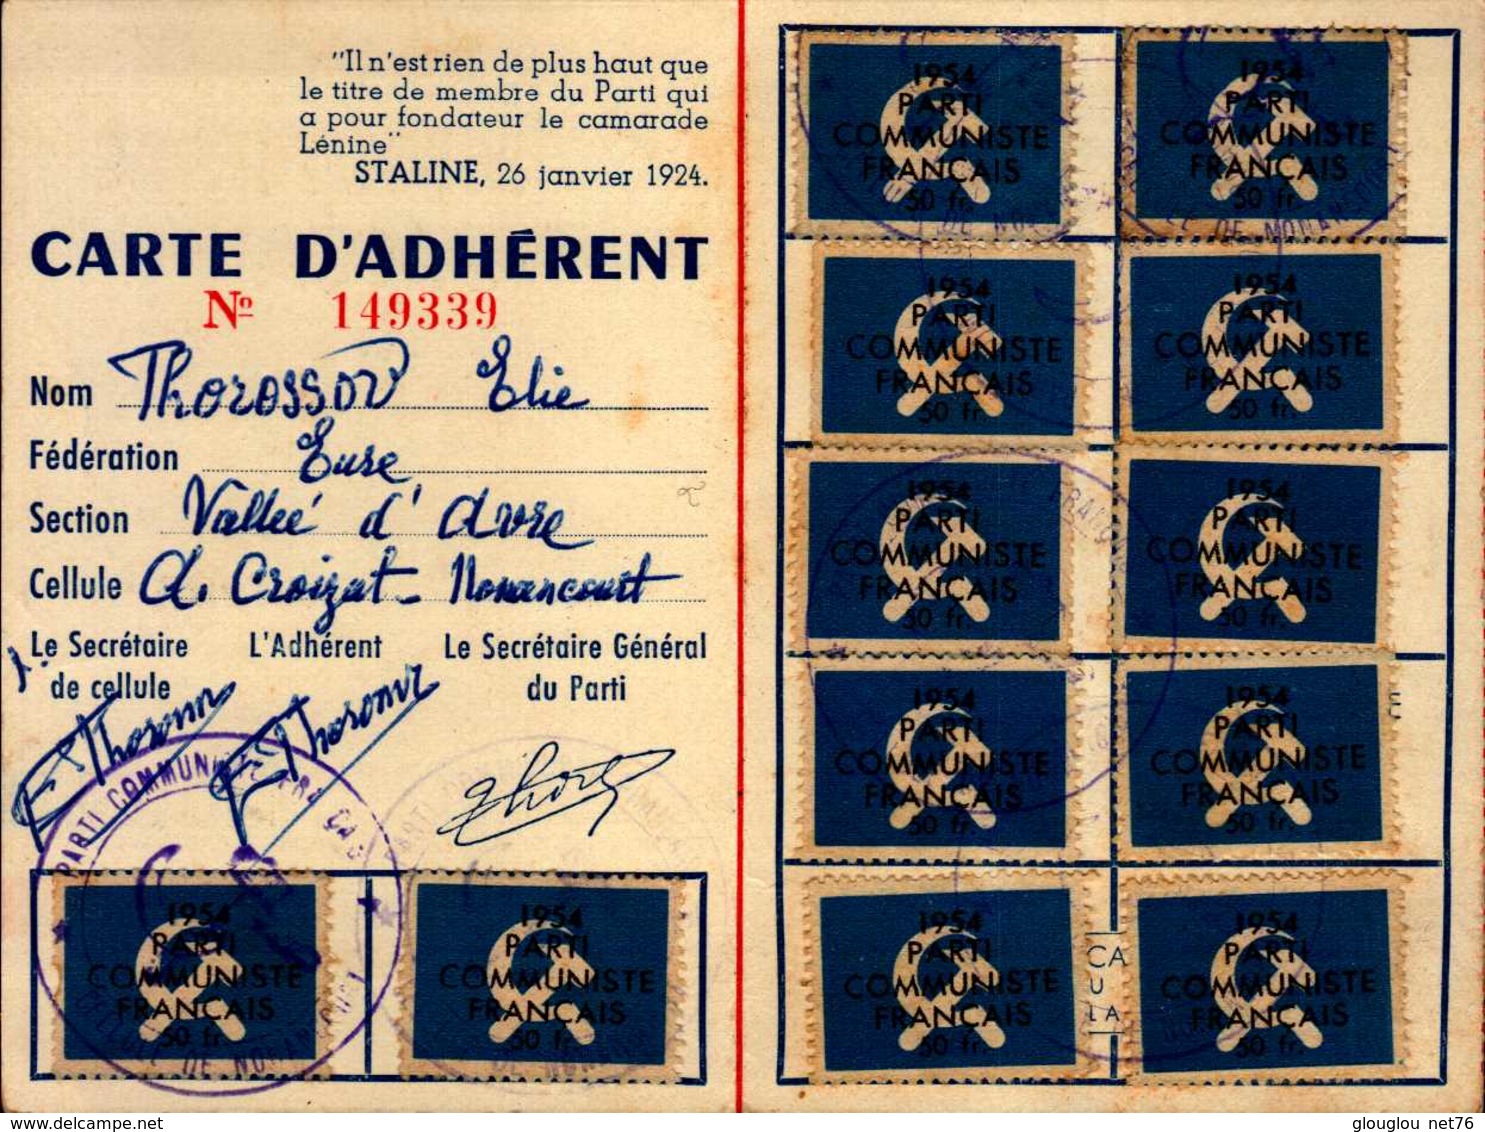 "Il n'est rien de plus haut que
le titre de membre du Parti qui
a pour fondateur le camarade
Lénine"
STALINE, 26 janvier 1924.
CARTE D'ADHÉRENT
Nº 149339
Nom Thorossov Elie
Fédération Eure
Section Vallée d'Avre
Cellule A. Croizat - Nonancourt
Le Secrétaire de cellule
L'Adhérent
Le Secrétaire Général du Parti
PARTI COMMUNISTE FRANÇAIS
CELLULE DE NONANCOURT
1954
PARTI
COMMUNISTE
FRANÇAIS
50 fr.
1954
PARTI
COMMUNISTE
FRANÇAIS
50 fr.
1954
PARTI
COMMUNISTE
FRANÇAIS
50 fr.
1954
PARTI
COMMUNISTE
FRANÇAIS
50 fr.
1954
PARTI
COMMUNISTE
FRANÇAIS
50 fr.
1954
PARTI
COMMUNISTE
FRANÇAIS
50 fr.
1954
PARTI
COMMUNISTE
FRANÇAIS
50 fr.
1954
PARTI
COMMUNISTE
FRANÇAIS
50 fr.
1954
PARTI
COMMUNISTE
FRANÇAIS
50 fr.
1954
PARTI
COMMUNISTE
FRANÇAIS
50 fr.
1954
PARTI
COMMUNISTE
FRANÇAIS
50 fr.
1954
PARTI
COMMUNISTE
FRANÇAIS
50 fr.
CA
U
LA
glouglou net76